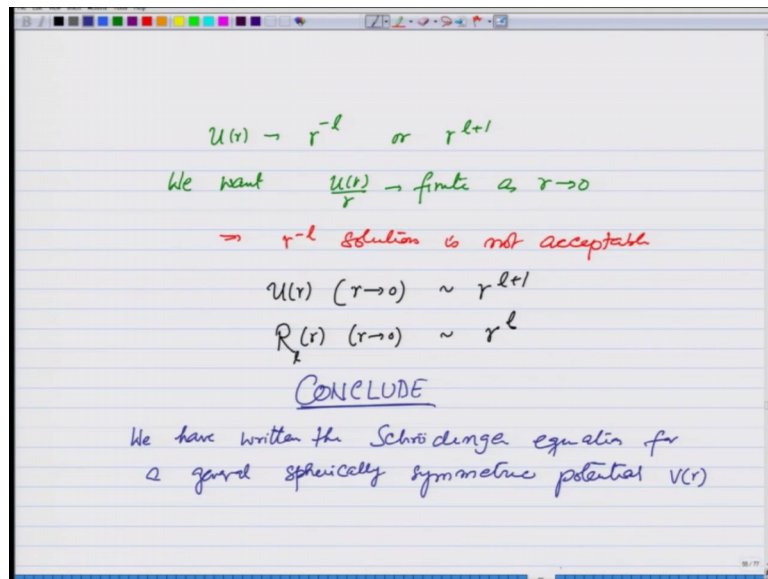 U(r) → r^{-l} or r^{l+1}
We want U(r)/r → finite as r→0
⇒ r^{-l} solution is not acceptable
U(r) (r→0) ~ r^{l+1}
R_l(r) (r→0) ~ r^l
CONCLUDE
We have written the Schrödinger equation for
a general spherically symmetric potential V(r)